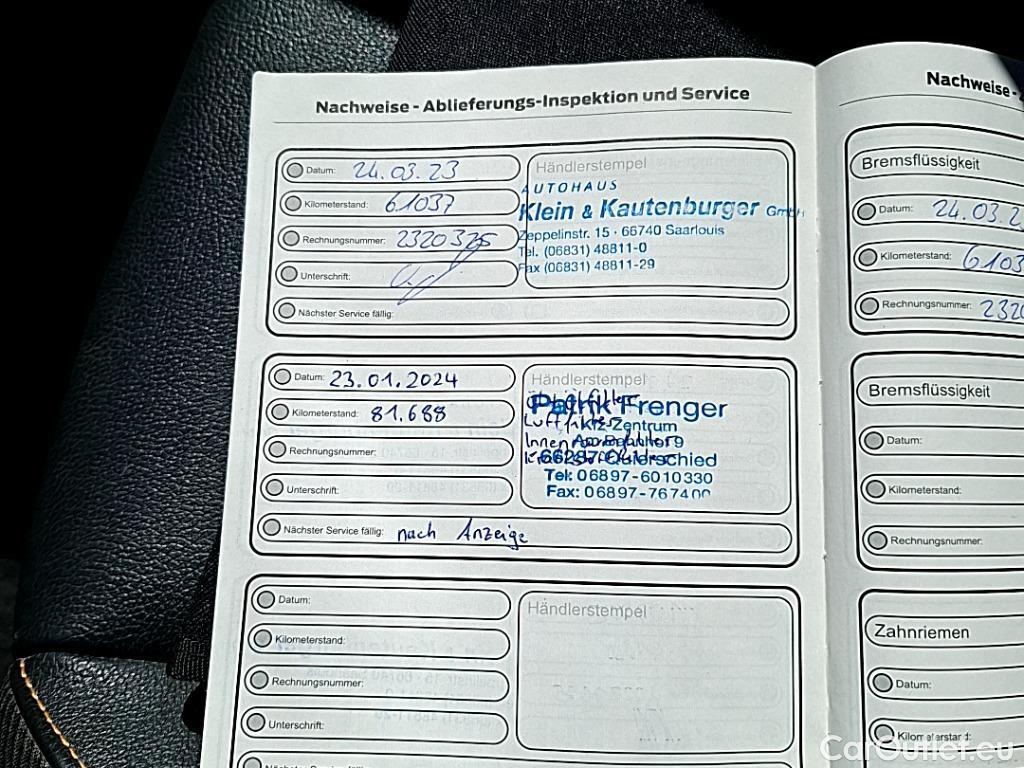 Nachweise - Ablieferungs-Inspektion und Service
Datum: 24.03.23
Kilometerstand: 61037
Rechnungsnummer: 2320325
Unterschrift:
Händlerstempel
AUTOHAUS
Klein & Kautenburger GmbH
Zeppelinstr. 15 · 66740 Saarlouis
Tel. (06831) 48811-0
Fax (06831) 48811-29
Nächster Service fällig:
Datum: 23.01.2024
Kilometerstand: 81.688
Rechnungsnummer:
Unterschrift:
Händlerstempel
Patrik Frenger
Kfz-Zentrum
66287 Quierschied
Tel: 06897-6010330
Fax: 06897-767400
Luftfilter
Nächster Service fällig: nach Anzeige
Datum:
Kilometerstand:
Rechnungsnummer:
Unterschrift:
Händlerstempel
Nächster Service fällig:
Nachweise -
Bremsflüssigkeit
Datum: 24.03.2
Kilometerstand: 6103
Rechnungsnummer: 232
Bremsflüssigkeit
Datum:
Kilometerstand:
Rechnungsnummer:
Zahnriemen
Datum:
Kilometerstand:
CarOutlet.eu